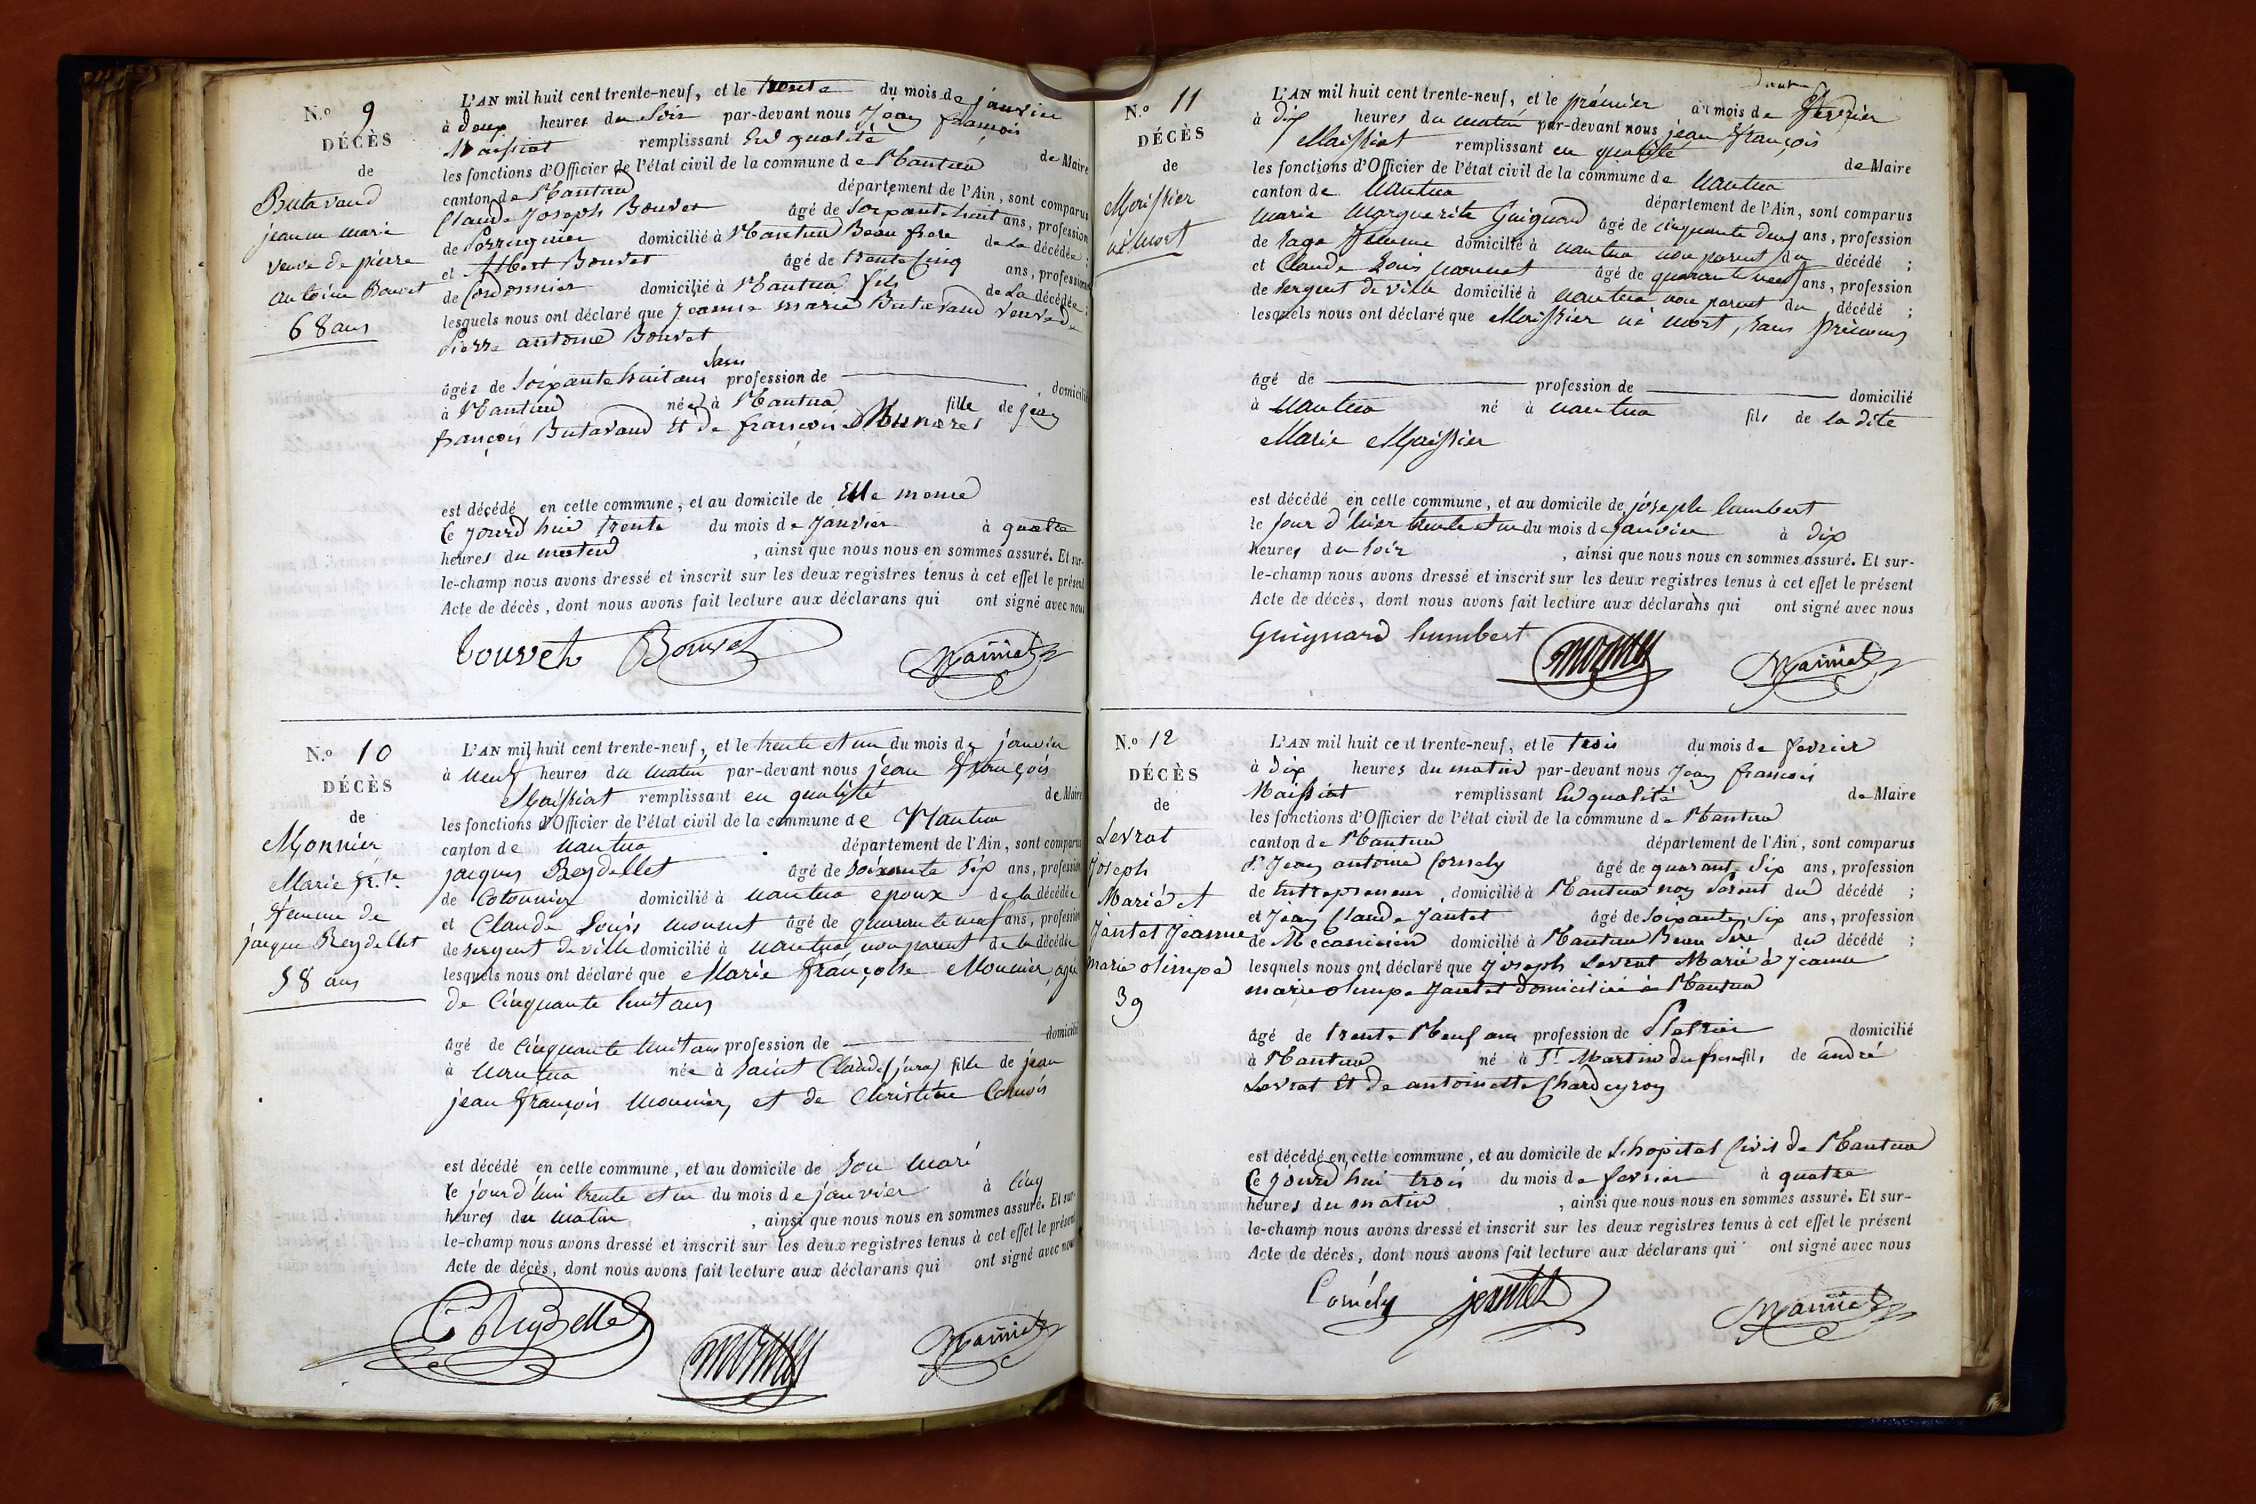 N.º 9
DÉCÈS
de
Butavand
jeanne marie
veuve de pierre
antoine Bouvet
68 ans
L'AN mil huit cent trente-neuf, et le trente du mois de janvier
à deux heures du Soir par-devant nous Jean françois
Maissiat remplissant En qualité de Maire
les fonctions d'Officier de l'état civil de la commune de Nantua
canton de Nantua département de l'Ain, sont comparus
Claude Joseph Bouvet âgé de Soixante huit ans, profession
de Perruquier domicilié à Nantua Beau frere de La décédée;
et Albert Bouvet âgé de trente Cinq ans, profession
de Cordonnier domicilié à Nantua fils de La décédée;
lesquels nous ont déclaré que Jeanne marie Butavand veuve de
Pierre antoine Bouvet
âgée de Soixante huit ans Sans profession de domicilié
à Nantua née à Nantua fille de Jean
françois Butavand Et de françoise
est décédé en cette commune, et au domicile de Elle meme
Ce jourd'hui trente du mois de Janvier à quatre
heures du matin, ainsi que nous nous en sommes assuré. Et sur-
le-champ nous avons dressé et inscrit sur les deux registres tenus à cet effet le présent
Acte de décès, dont nous avons fait lecture aux déclarans qui ont signé avec nous
bouvet Bouvet Maissiat
N.º 10
DÉCÈS
de
Monnier
Marie fr.se
femme de
jacque Reydellet
58 ans
L'AN mil huit cent trente-neuf, et le trente et un du mois de janvier
à neuf heures du matin par-devant nous jean françois
Maissiat remplissant en qualité de Maire
les fonctions d'Officier de l'état civil de la commune de Nantua
canton de nantua département de l'Ain, sont comparus
jacques Reydellet âgé de soixante six ans, profession
de Cotonnier domicilié à nantua epoux de la décédée
et Claude Louis monnet âgé de quarante neuf ans, profession
de sergent de ville domicilié à nantua non parent de la décédée
lesquels nous ont déclaré que Marie françoise Monnier, agée
de Cinquante huit ans
âgé de cinquante huit ans profession de domicilié
à nantua née à Saint Claude (jura) fille de jean
jean françois monnier, et de Christine
est décédé en cette commune, et au domicile de son mari
le jourd'hui trente et un du mois de janvier à cinq
heures du matin, ainsi que nous nous en sommes assuré. Et sur-
le-champ nous avons dressé et inscrit sur les deux registres tenus à cet effet le présent
Acte de décès, dont nous avons fait lecture aux déclarans qui ont signé avec nous
Reydellet monnet Maissiat
N.º 11
DÉCÈS
de
Moissier
né mort
L'AN mil huit cent trente-neuf, et le prémier du mois de fevrier
à dix heures du matin par-devant nous jean françois
Maissiat remplissant en qualité de Maire
les fonctions d'Officier de l'état civil de la commune de Nantua
canton de Nantua département de l'Ain, sont comparus
marie Marguerite Guignard âgé de cinquante deux ans, profession
de sage femme domicilié à nantua non parent du décédé;
et Claude Louis monnet âgé de quarante neuf ans, profession
de sergent de ville domicilié à nantua non parent du décédé;
lesquels nous ont déclaré que Moissier né mort, sans prénoms
âgé de profession de domicilié
à nantua né à nantua fils de la dite
Marie Moissier
est décédé en cette commune, et au domicile de joseph humbert
le jour d'hier trente et un du mois de janvier à dix
heures du soir, ainsi que nous nous en sommes assuré. Et sur-
le-champ nous avons dressé et inscrit sur les deux registres tenus à cet effet le présent
Acte de décès, dont nous avons fait lecture aux déclarans qui ont signé avec nous
Guignard humbert monnet Maissiat
N.º 12
DÉCÈS
de
Levrat
Joseph
Marié à
Jantet Jeanne
marie olimpe
39
L'AN mil huit cent trente-neuf, et le trois du mois de fevrier
à dix heures du matin par-devant nous Jean françois
Maissiat remplissant En qualité de Maire
les fonctions d'Officier de l'état civil de la commune de Nantua
canton de Nantua département de l'Ain, sont comparus
S.r Jean antoine Cornely âgé de quarante Six ans, profession
de Entrepreneur domicilié à Nantua non Parent du décédé;
et Jean Claude Jantet âgé de Soixante Six ans, profession
de Mecanicien domicilié à Nantua Beau Pere du décédé;
lesquels nous ont déclaré que Joseph Levrat Marié à Jeanne
marie olimpe Jantet domiciliée à Nantua
âgé de trente Neuf ans profession de Platrier domicilié
à Nantua né à S.t Martin du fresne fils de andré
Levrat Et de antoinette Chardeyron
est décédé en cette commune, et au domicile de L'hopital Civil de Nantua
Ce jourd'hui trois du mois de fevrier à quatre
heures du matin, ainsi que nous nous en sommes assuré. Et sur-
le-champ nous avons dressé et inscrit sur les deux registres tenus à cet effet le présent
Acte de décès, dont nous avons fait lecture aux déclarans qui ont signé avec nous
Cornély jeantet Maissiat